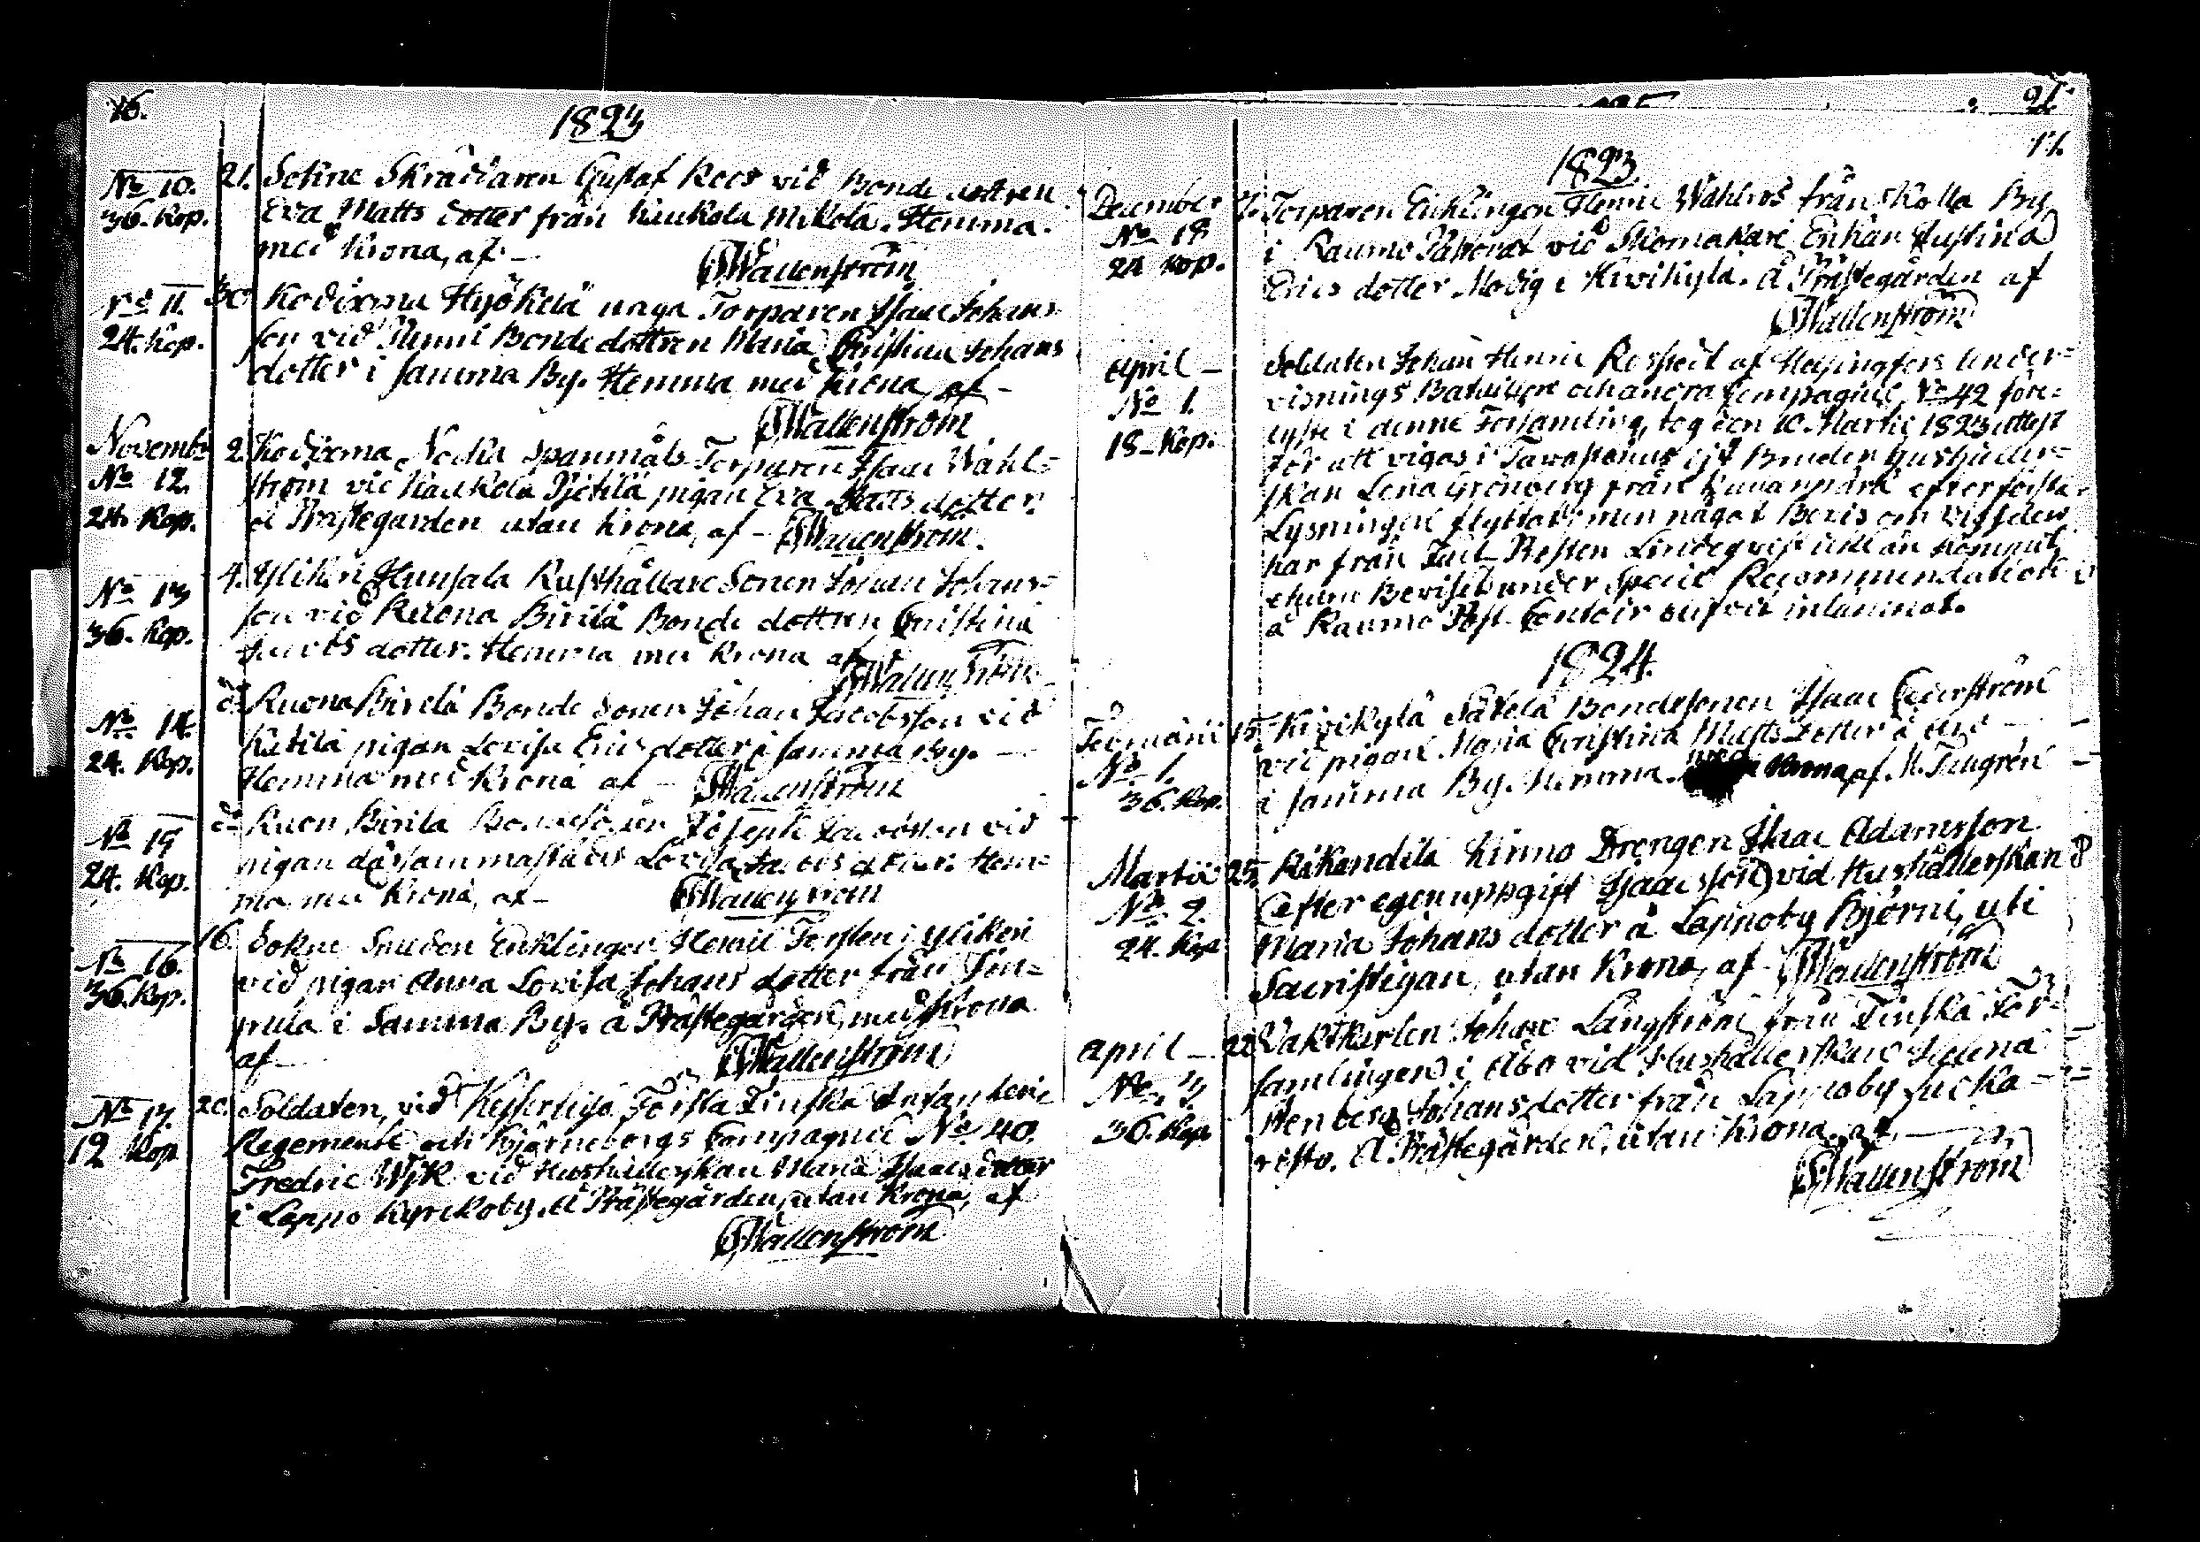 16.
1823
No 10. 21. Sokne Skräddaren Gustaf Roos vid Bonde dottren
36. Kop. Eva Matts dotter från Kaukola Mikola. Hemma
med Krona, af
Wallenström
No 11. 30. Kodixoma Hyökelä naga Torparen Isaac Johans
24. Kop. son vid Bonde dottren Maria Christina Johans
dotter i samma By. Hemma med Krona af
Wallenström
Novemb. 2. Kodixoma Spanmåls Torparen Isaac Wahl=
No 12. ström vid Kaukola pigan Eva Matts dotter.
24. Kop. å Prästegården utan Krona, af Wallenström.
No 13 4. Yliken Hunsala Rusthållare Sonen Johan Johans=
36. Kop. son vid Ruona Birilä Bonde dottren Christina
Jacobs dotter. Hemma med Krona af
Wallenström
No 14. do Ruona Birilä Bonde Sonen Johan Jacobsson vid
24. Kop. pigan Lovisa Erics dotter i samma By.
Hemma med Krona af Wallenström
No 15 do Ruon Birila Bondesonen Joseph Jacobsson vid
24. Kop. pigan därsammastädes Lovisa dotter. Hem=
ma med Krona, af Wallenström
No 16. 16. Sokne Smeden Enklingen Henric Torsten i Yliken
36. Kop. vid pigan Anna Lovisa Johans dotter från
i Samma By. å Prästegården, med Krona
af Wallenström
No 17. 20. Soldaten, vid Kejserliga Första Finska Infanterie
12 Kop. Regemente och Björneborgs Compagnie No 40.
Fredric Wik vid Hushållerskan Maria Isaacs dotter
i Lappo Kyrckoby. å Prästegården, utan Krona, af
Wallenström
21.
17.
1823.
December 7. Torparen Enklingen Henric Wahlros från Kolla By
No 18 i Raumo vid Skomakare Enkan Justina
24 Kop. Erics dotter Modig i Kivikylä. å Prästegården af
Wallenström
April Soldaten Johan Henric Respect af Helsingfors Under=
No 1. visnings Bataillon och andra Compagnie, No 42 före=
18 Kop. lyste i denne Församling, tog den 10 Martii 1823 attest
för att vigas i Tavastehus vid Hushåller=
skan Lena Grönberg från efter första
Lysningen flyttat; men något Bevis om Vigseln
har från Lindeqvist icke än kommit
Beviset under Recommendation
å Raumo Post Contoir inlämnat.
1824.
Februarii 15. Kivikylä Säkelä Bondesonen Isaac Cederström
No 1. vid pigan Maria Christina Matts dotter å
36. Kop. i samma By. Hemma med Krona af M. Tingrén
Martii 25. Kinno Drengen Isaac Adamsson
No 2. (efter egen uppgift Isaacsson) vid Hushållerskan
24. Kop. Maria Johans dotter å Lappoby Björni, uti
Sacristigan, utan Krona, af Wallenström
April 22 Vaktkarlen Johan Långström från Finska För=
No 3. samlingen i Åbo vid Hushållerskan Helena
36. Kop Stenberg Johansdotter från Lappoby
å Prästegården, utan Krona, af
Wallenström